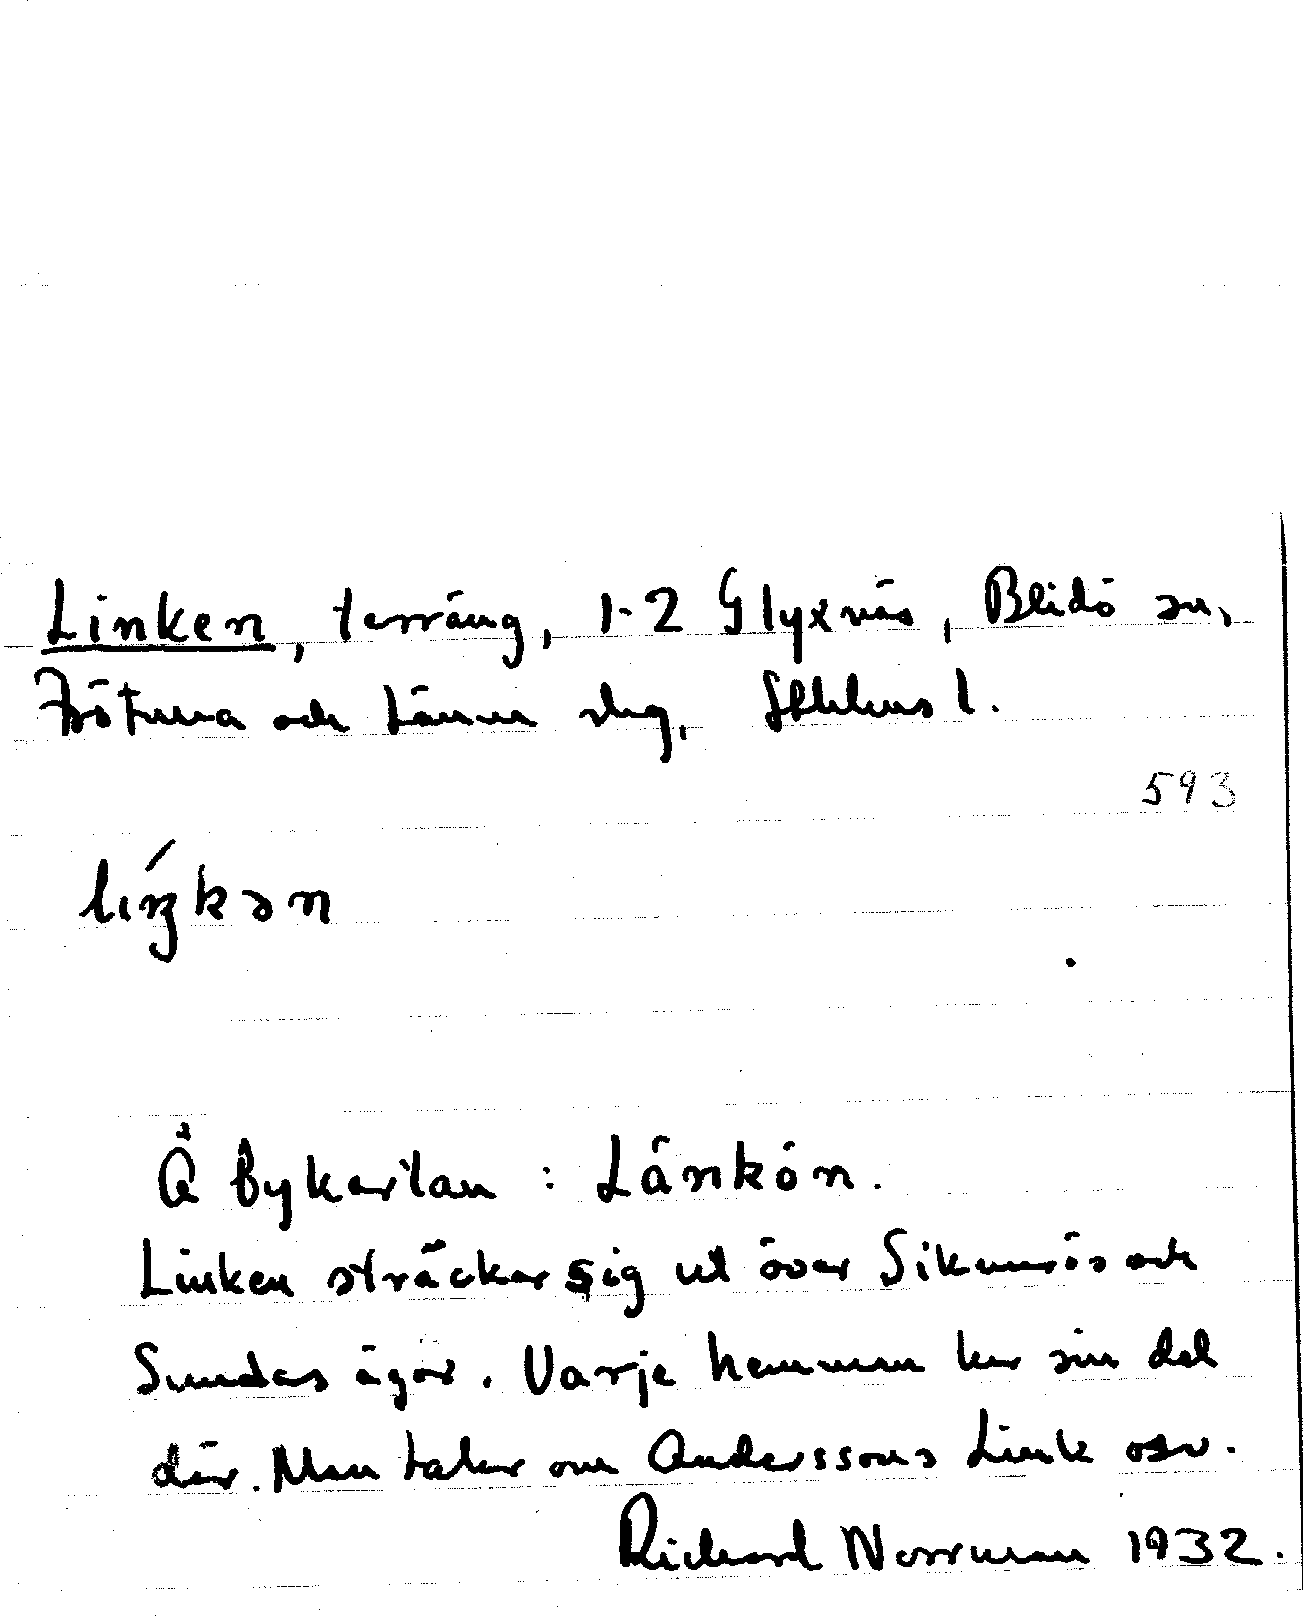 Linken, terräng, 1-2 Glyxnäs, Blidö sn,
Frötuna och Länna slg, Sthlms l.
593
líŋkən
Å bykartan : Länkön.
Linken sträcker sig ut över Sikmarös och
Sundas ägor. Varje hemman har sin del
där. Man talar om Anderssons Link osv.
Richard Norrman 1932.